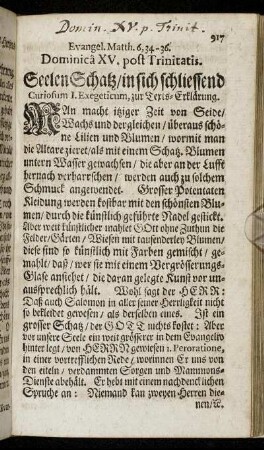 Domin. XV. p. Trinit.
917
Evangel. Matth. 6, 24-36.
Dominicâ XV. post Trinitatis.
Seelen Schatz/ in sich schliessend
Curiosum I. Exegeticum, zur Texts-Erklärung.
MAn macht itziger Zeit von Seide/
Wachs und dergleichen/ überaus schö-
ne Lilien und Blumen/ wormit man
die Altare zieret/ als mit einem Schatz. Blumen
untern Wasser gewachsen/ die aber an der Lufft
hernach verharrschen/ werden auch zu solchem
Schmuck angewendet. Grosser Potentaten
Kleidung werden kostbar mit den schönsten Blu-
men/ durch die künstlich geführte Nadel gestickt.
Aber weit künstlicher mahlet GOtt ohne Zuthun die
Felder/ Gärten/ Wiesen mit tausenderley Blumen/
diese sind so künstlich mit Farben gemischt/ ge-
mahlt/ daß/ wer sie mit einem Vergrösserungs-
Glase ansiehet/ die daran gelegte Kunst vor un-
aussprechlich hält. Wohl sagt der HERR:
Daß auch Salomon in aller seiner Herrligkeit nicht
so bekleidet gewesen/ als derselben eines. Ist ein
grosser Schatz/ der GOTT nichts kostet: Aber
vor unsere Seele ein weit grösserer in dem Evangelio
hinter legt/ von HERRN gewiesen 1. Peroratione,
in einer vortrefflichen Rede/ worinnen Er uns von
den eiteln/ verdammten Sorgen und Mammons-
Dienste abehält. Er hebt mit einem nachdencklichen
Spruche an: Niemand kan zweyen Herren die-
nen/ &c.